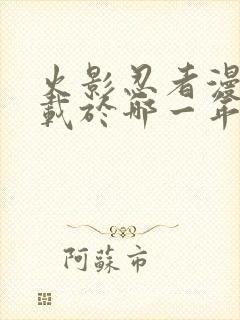 火影忍者漫
載於哪一年
阿蘇市